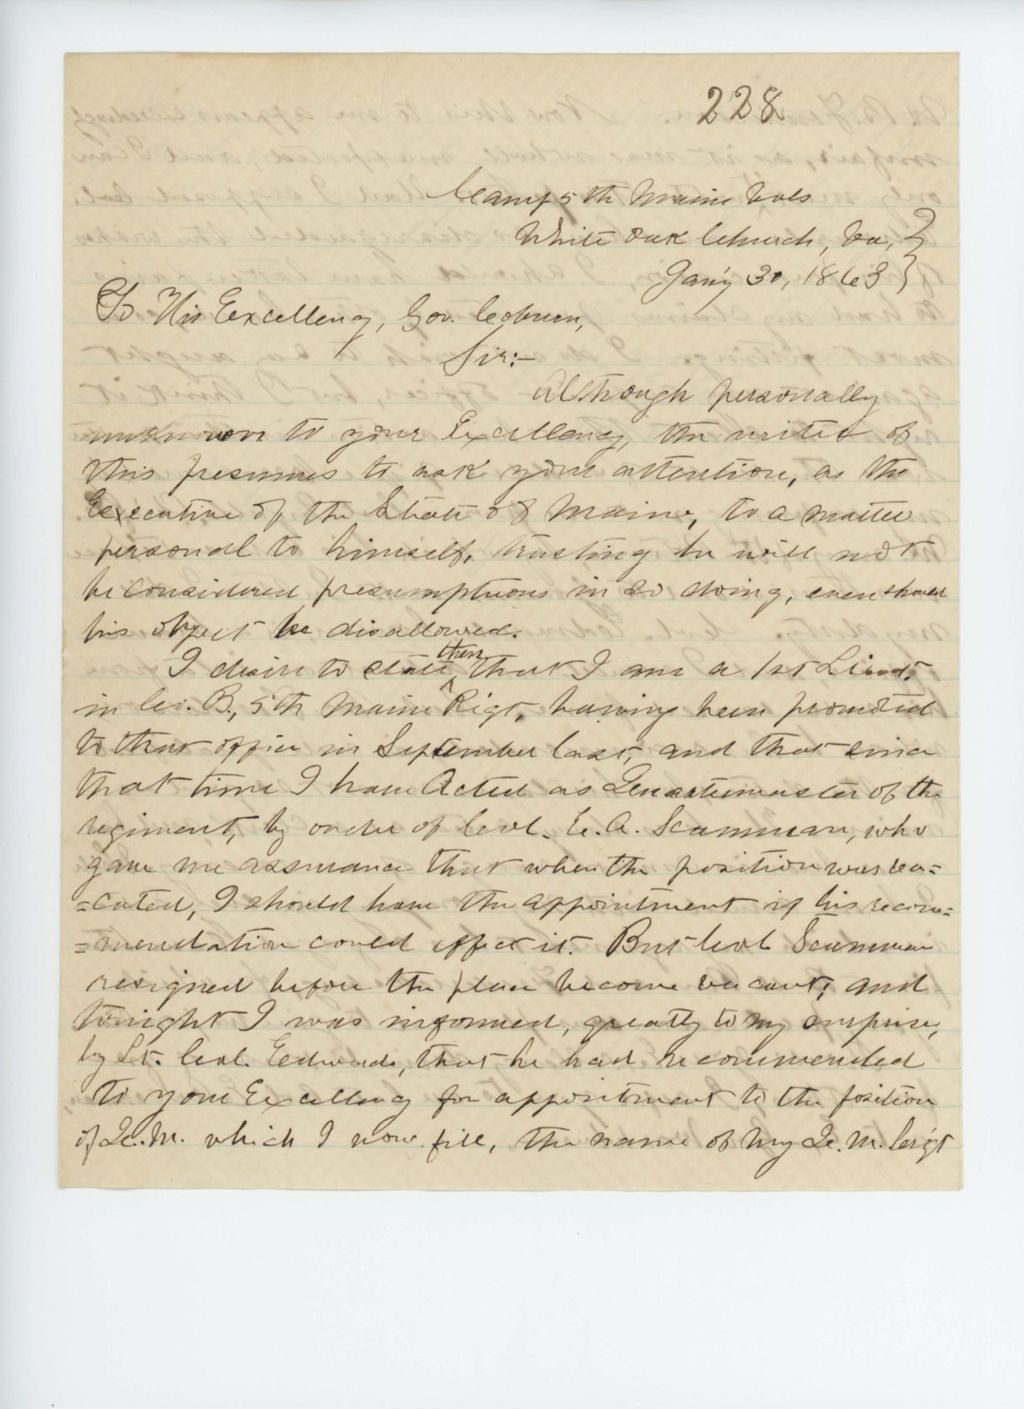 228
Camp 5th Maine Vols
White Oak Church, Va, }
Jan'y 30, 1863 }
To His Excellency, Gov. Coburn,
Sir:-
Although personally
unknown to your Excellency, the writer of
this presumes to ask your attention, as the
Executive of the State of Maine, to a matter
personal to himself, trusting he will not
be considered presumptuous in so doing, even should
his object be disallowed.
I desire to state then that I am a 1st Lieut.
in Co. B, 5th Maine Regt, having been promoted
to that office in September last, and that since
that time I have Acted as Quartermaster of the
regiment, by order of Col. E. A. Scamman, who
gave me assurance that when the position was va=
=cated, I should have the appointment if his recom=
=mendation could effect it. But Col Scamman
resigned before the place became vacant, and
tonight I was informed, greatly to my surprise,
by Lt. Col. Edwards, that he had recommended
to your Excellency for appointment to the position
of Q.M. which I now fill, the name of my Q.M. Serg't